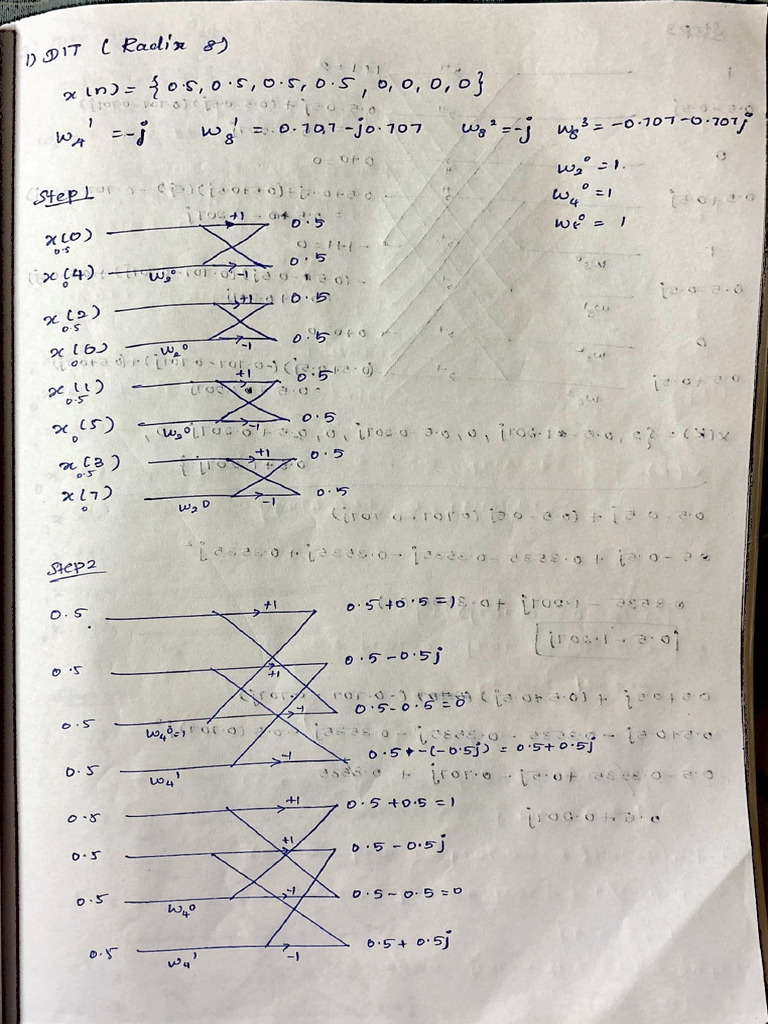 1) DIT ( Radix 8)
x(n) = { 0.5, 0.5, 0.5, 0.5, 0, 0, 0, 0}
W₄¹ = -j W₈¹ = 0.707-j0.707 W₈² = -j W₈³ = -0.707-0.707j
W₂⁰ = 1.
W₄⁰ = 1
W₈⁰ = 1
Step1
x(0) +1 0.5
0.5
x(4) W₂⁰ -1 0.5
0
x(2) +1 0.5
0.5
x(6) W₂⁰ -1 0.5
0
x(1) +1 0.5
0.5
x(5) W₂⁰ -1 0.5
0
x(3) +1 0.5
0.5
x(7) W₂⁰ -1 0.5
0
Step2
0.5 +1 0.5+0.5=1
0.5 +1 0.5-0.5j
0.5 W₄⁰=1 -1 0.5-0.5=0
0.5 W₄¹ -1 0.5+-(-0.5j) = 0.5+0.5j
0.5 +1 0.5+0.5=1
0.5 +1 0.5-0.5j
0.5 W₄⁰ -1 0.5-0.5=0
0.5 W₄¹ -1 0.5+0.5j